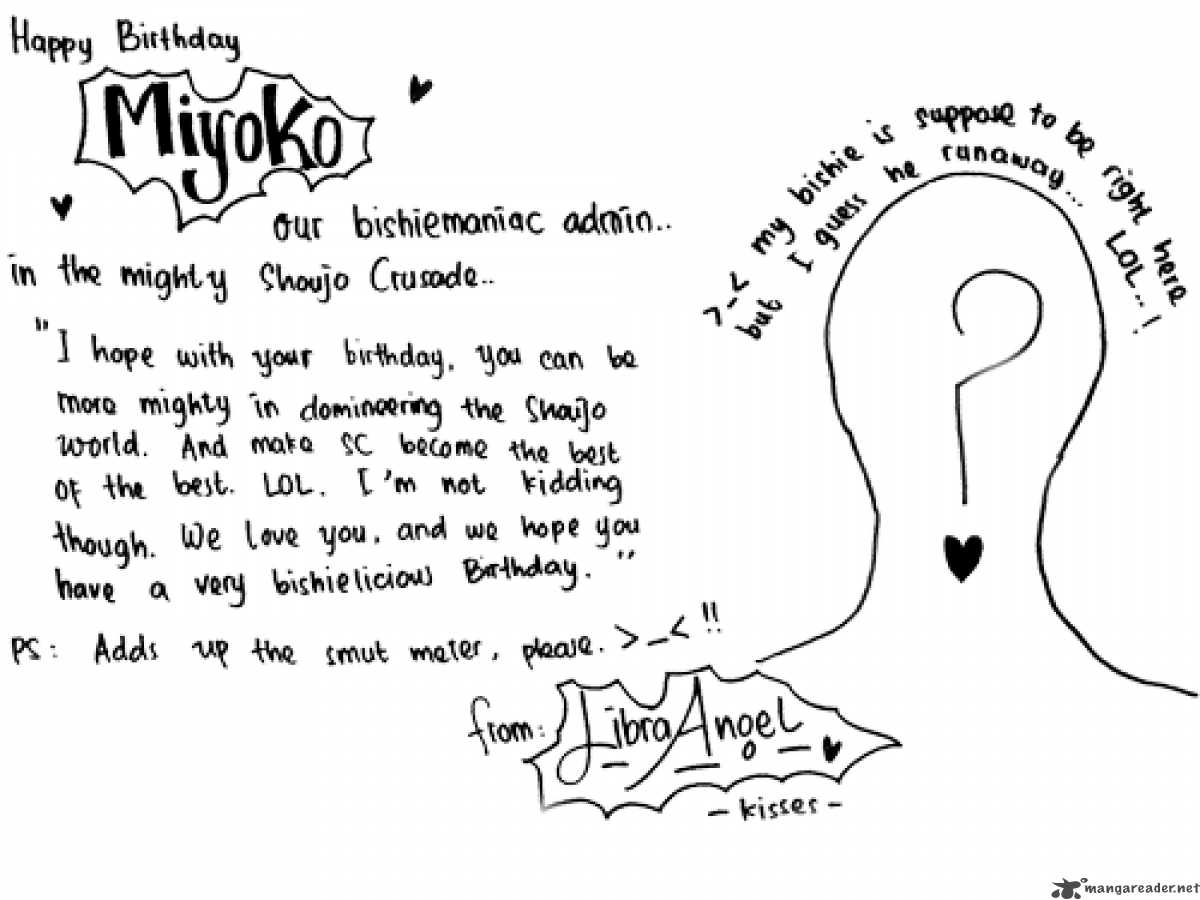 Happy Birthday
Miyoko
our bishiemaniac admin..
in the mighty Shoujo Crusade..
"I hope with your birthday, you can be
more mighty in domineering the Shoujo
world. And make SC become the best
of the best. LOL. I'm not kidding
though. We love you, and we hope you
have a very bishielicious Birthday."
PS: Adds up the smut meter, please. >_< !!
from: LibraAngel
- kisses -
>_< my bishie is suppose to be right here
but I guess he runaway... LOL..!
?
mangareader.net